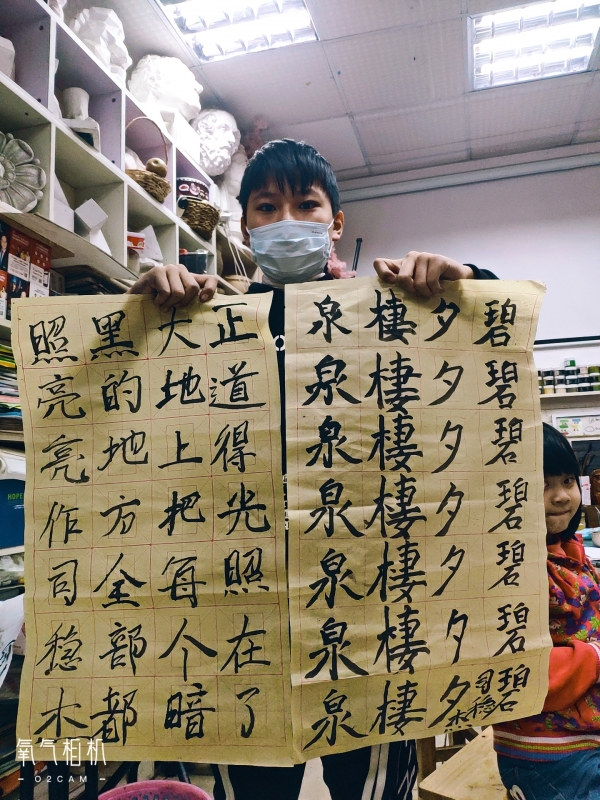 正道得光照在了
大地上把每个暗
黑的地方全部都
照亮亮作司稳木
碧碧碧碧碧碧碧
夕夕夕夕夕夕夕
棲棲棲棲棲棲棲
泉泉泉泉泉泉泉
司稳木
氧气相机
— O2CAM —